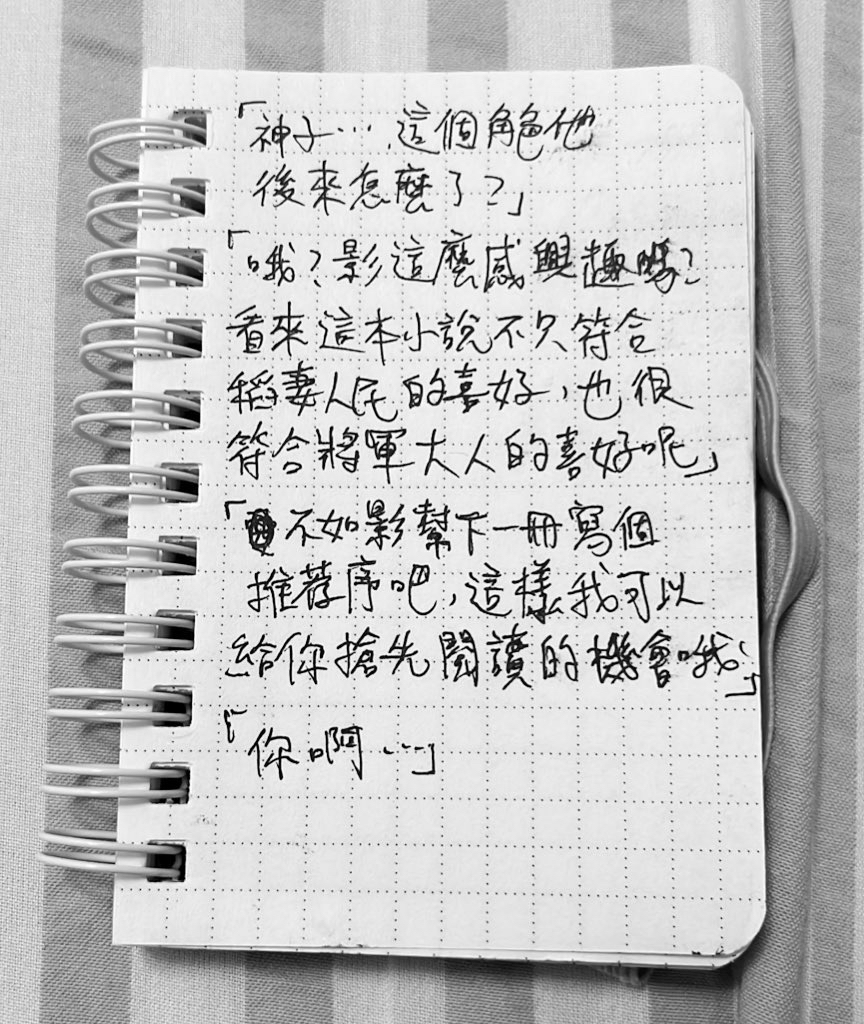 「神子…,這個角色他
後來怎麼了?」
「哦?影這麼感興趣嗎?
看來這本小說不欠符合
稻妻人民的喜好,也很
符合將軍大人的喜好呢」
「不如影幫下一冊寫個
推荐序吧,這樣我可以
給你搶先閱讀的機會哦」
「你啊…」